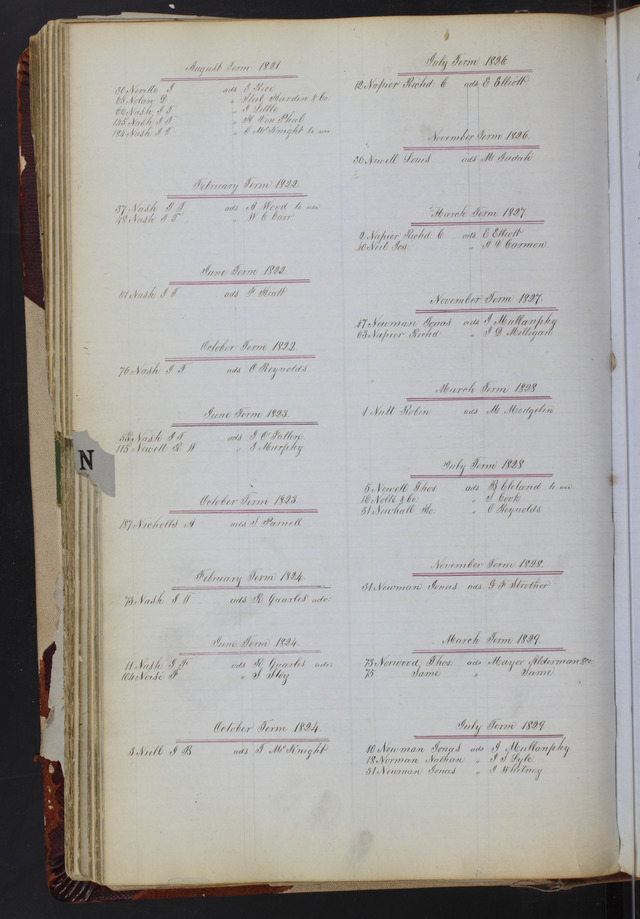 August Term 1821
36 Neville J ads E Rice
65 Nolan D " Steel Harden & Co
66 Nash I T " J Little
125 Nash I T " H Von Phul
184 Nash I T " C McKnight to use
February Term 1822
37 Nash I T ads A Wood to use
48 Nash I T " W C Carr
June Term 1822
Nash I T ads F Hiatt
October Term 1822
76 Nash I T ads O Reynolds
June Term 1823
53 Nash I T ads J O'Fallon
115 Newell R W " J Murphy
N
October Term 1823
187 Nicholls A ads J Parnell
February Term 1824
73 Nash I T ads R Quarles adx
June Term 1824
11 Nash I F ads R Quarles adx
104 Noise F " S Stoy
October Term 1824
3 Neill J B ads J McKnight
July Term 1826
12 Napier Richd C ads E Elliott
November Term 1826
36 Newell Louis ads M Judah
March Term 1827
2 Napier Richd C ads E Elliott
40 Neil Jos " Carmon
November Term 1827
47 Newman Jonas ads J Mullanphy
65 Napier Richd " J D Milligan
March Term 1828
1 Nutt Robin ads M Modgelin
July Term 1828
5 Newell Thos ads B Cleland to use
16 Nolte & Co " J Cook
31 Newhall " O Reynolds
November Term 1828
51 Newman Jonas ads G F Strother
March Term 1829
73 Norwood Thos ads Mayor Alderman &c
75 Same " Same
July Term 1829
10 Newman Jonas ads J Mullanphy
18 Norman Nathan " J S Lyle
51 Newman Jonas " J Whitney